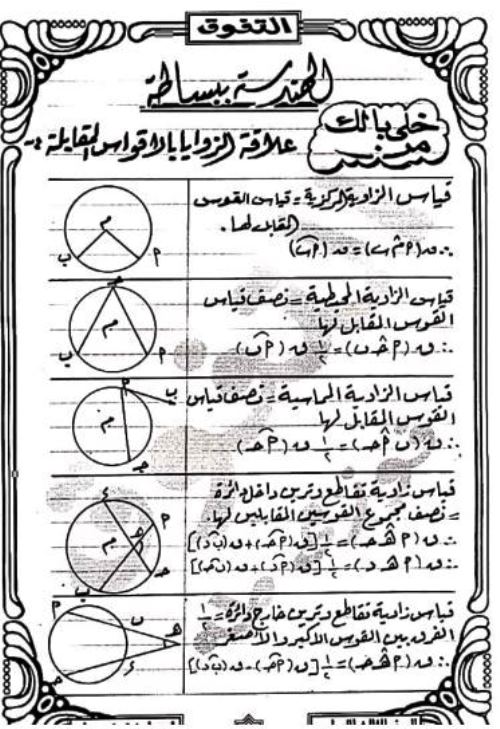 التفوق
الهندسة ببساطة
خلى بالك
من
علاقة الزوايا بالاقواس المقابلة :-
قياس الزاوية المركزية = قياس القوس
المقابل لها .
∴ ق (أ م̂ ب) = ق (أب)
م
ب
أ
قياس الزاوية المحيطية = نصف قياس
القوس المقابل لها
∴ ق (أ حـ̂ ب) = ١/٢ ق (أب)
حـ
م
ب
أ
قياس الزاوية المماسية = نصف قياس
القوس المقابل لها
∴ ق (ب أ̂ حـ) = ١/٢ ق (أحـ)
أ
ب
م
حـ
قياس زاوية تقاطع وترين داخل دائرة
= نصف مجموع القوسين المقابلين لها
∴ ق (أ هـ̂ حـ) = ١/٢ [ق (أحـ) + ق (بد)]
∴ ق (أ هـ̂ د) = ١/٢ [ق (أد) + ق (بحـ)]
ء
أ
م
هـ
حـ
ب
قياس زاوية تقاطع وترين خارج دائرة = ١/٢
الفرق بين القوس الأكبر والأصغر
∴ ق (أ هـ̂ حـ) = ١/٢ [ق (أحـ) - ق (بد)]
أ
ب
هـ
ء
حـ